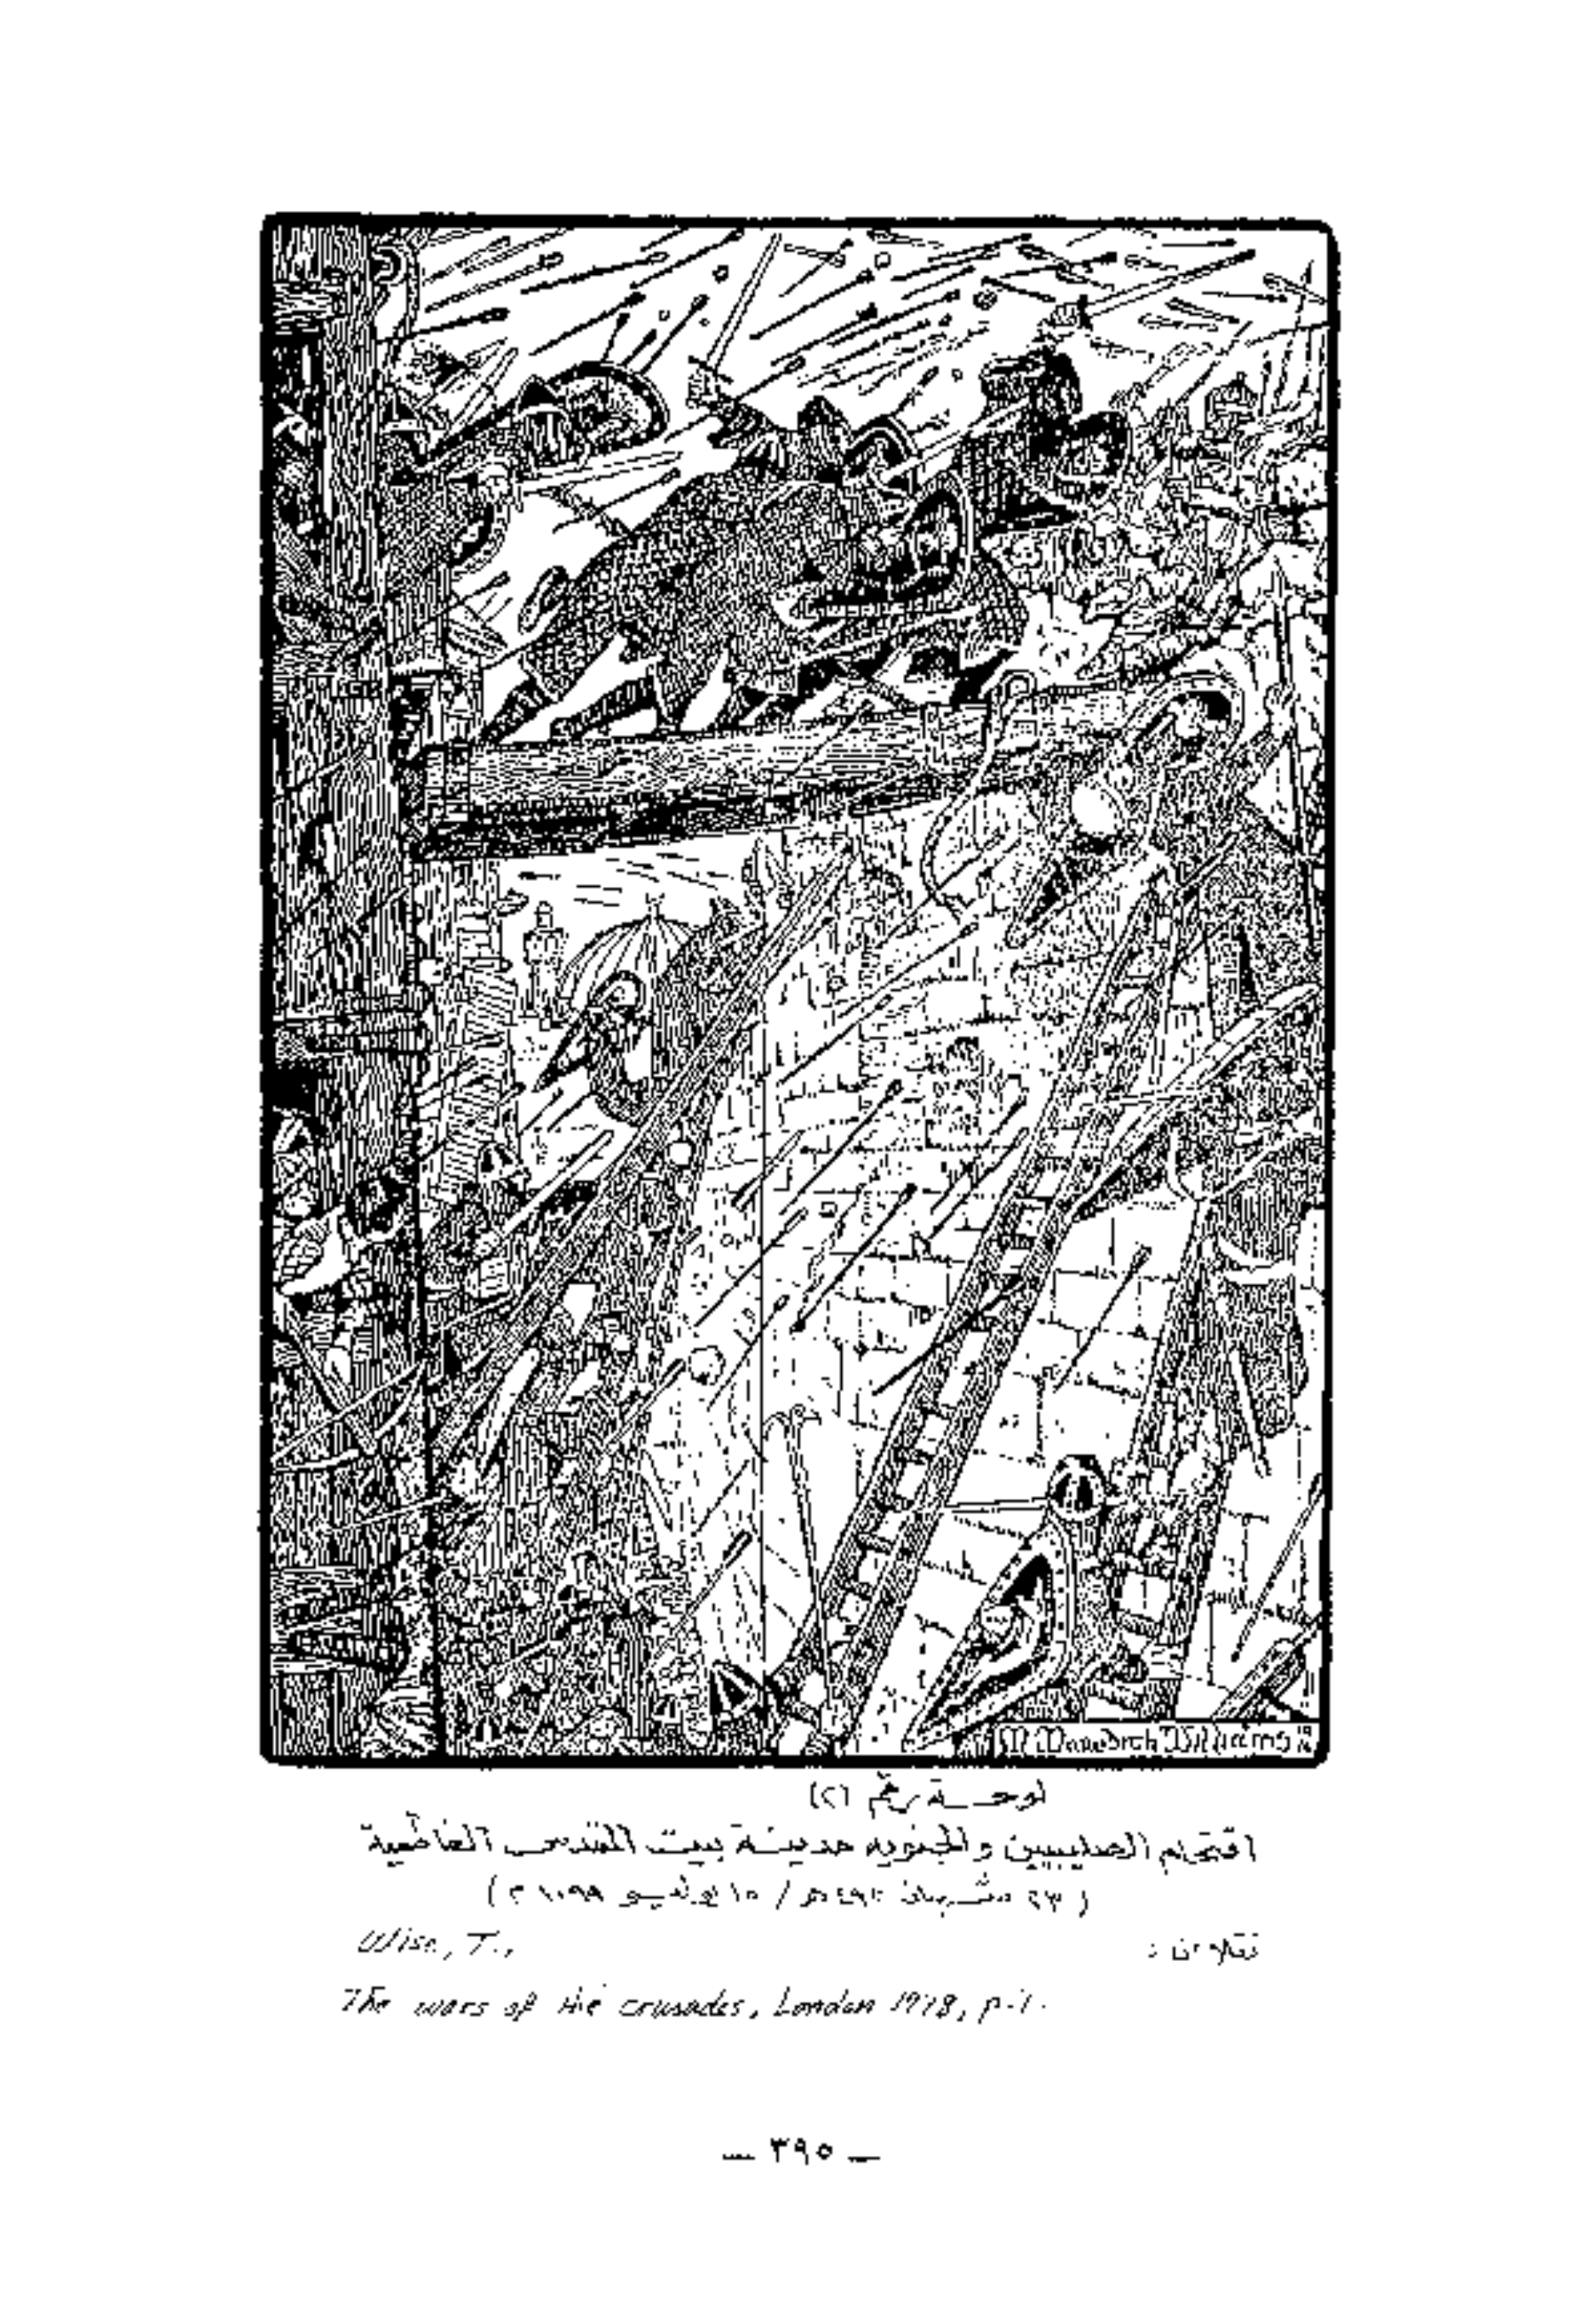 لوحة رقم (٢)
اقتحام الصليبيين والجنوية مدينة بيت المقدس الفاطمية
(٢٣ شعبان ٤٩٢هـ / ١٥ يوليو ١٠٩٩م)
نقلا عن :
Wise, T.,
The wars of the crusades, London 1978, p.1.
— ٣٩٥ —